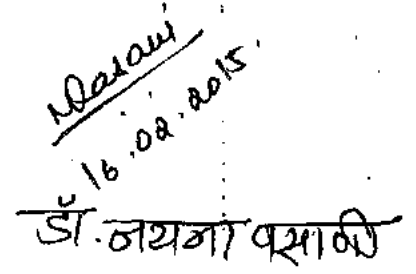 NVasani
16.02.2015.
डॉ. नयना वसाणी